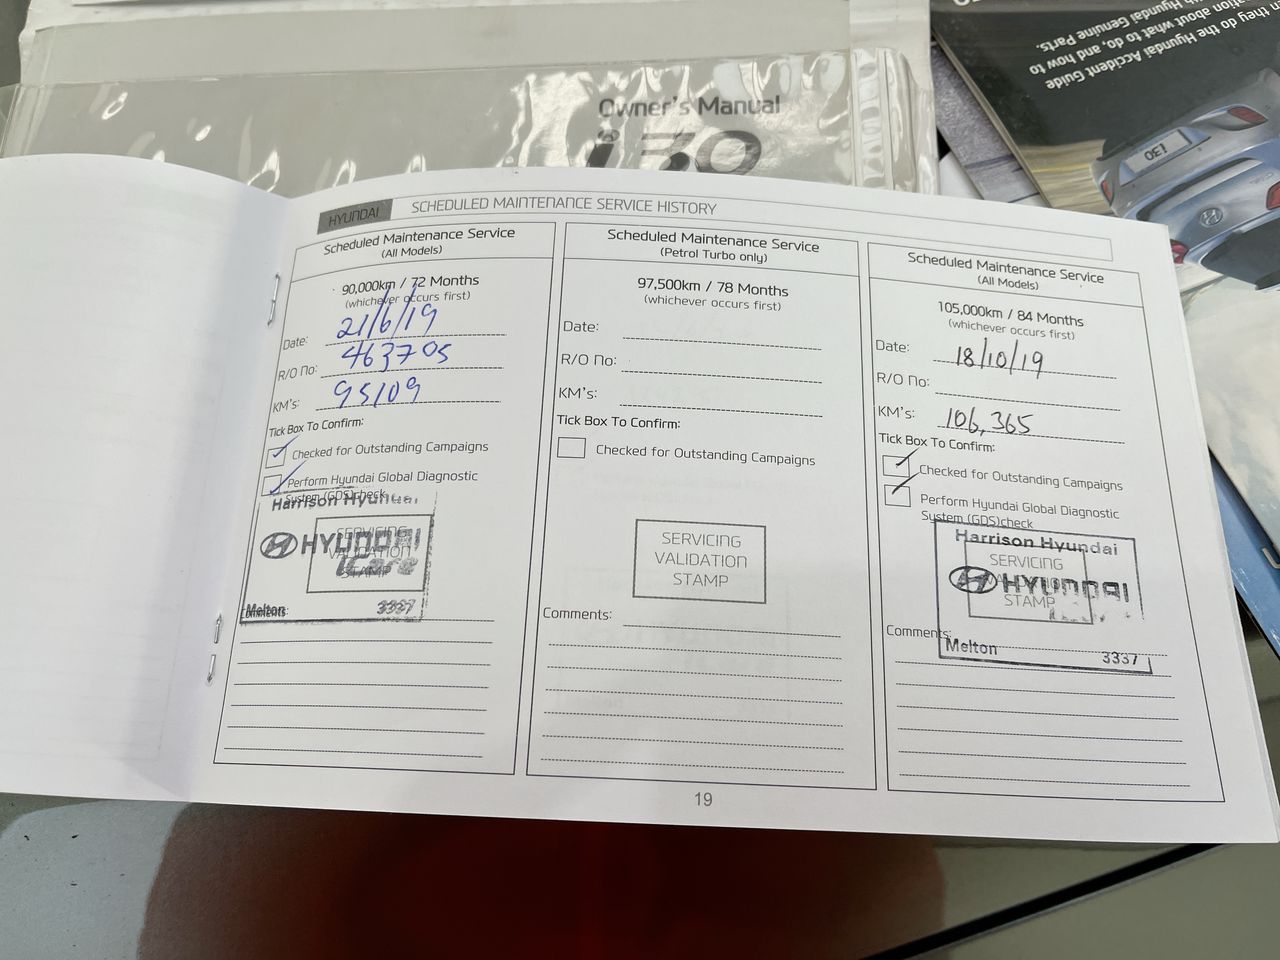 Owner's Manual
i30
the Hyundai Accident Guide
what to do, and how to
ation about Hyundai Genuine Parts.
n they do
i30
HYUNDAI
SCHEDULED MAINTENANCE SERVICE HISTORY
Scheduled Maintenance Service
(All Models)
90,000km / 72 Months
(whichever occurs first)
Date: 21/6/19
R/O No: 463705
KM's: 95109
Tick Box To Confirm:
Checked for Outstanding Campaigns
Perform Hyundai Global Diagnostic
System (GDS)check
Harrison Hyundai
SERVICING
VALIDATION
STAMP
HYUNDAI
iCare
Melton 3337
Comments:
Scheduled Maintenance Service
(Petrol Turbo only)
97,500km / 78 Months
(whichever occurs first)
Date:
R/O No:
KM's:
Tick Box To Confirm:
Checked for Outstanding Campaigns
SERVICING
VALIDATION
STAMP
Comments:
Scheduled Maintenance Service
(All Models)
105,000km / 84 Months
(whichever occurs first)
Date: 18/10/19
R/O No:
KM's: 106,365
Tick Box To Confirm:
Checked for Outstanding Campaigns
Perform Hyundai Global Diagnostic
System (GDS)check
Harrison Hyundai
SERVICING
VALIDATION
STAMP
HYUNDAI
Comments:
Melton 3337
19